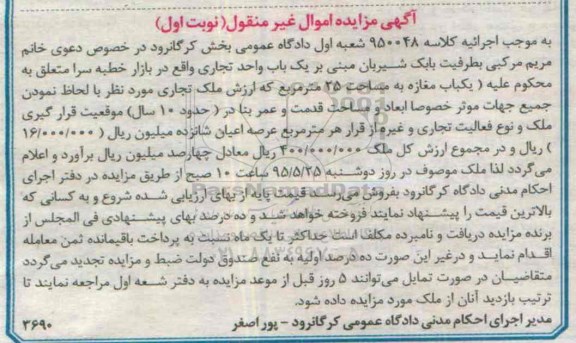 آگهی مزایده اموال غیر منقول( نوبت اول)
به موجب اجرائیه کلاسه ۹۵۰۰۴۸ شعبه اول دادگاه عمومی بخش کرگانرود در خصوص دعوی خانم
مریم مرکبی بطرفیت بابک شیربان مبنی بر یک باب واحد تجاری واقع در بازار خطبه سرا متعلق به
محکوم علیه ( یکباب مغازه به مساحت ۲۵ مترمربع که ارزش ملک تجاری مورد نظر با لحاظ نمودن
جمیع جهات موثر خصوصا ابعاد و مساحت قدمت و عمر بنا در ( حدود ۱۰ سال) موقعیت قرار گیری
ملک و نوع فعالیت تجاری و غیره از قرار هر مترمربع عرصه اعیان شانزده میلیون ریال ( ۱۶/۰۰۰/۰۰۰
) ریال و در مجموع ارزش کل ملک ۴۰۰/۰۰۰/۰۰۰ ریال معادل چهارصد میلیون ریال برآورد و اعلام
می‌گردد لذا ملک موصوف در روز دوشنبه ۹۵/۵/۲۵ ساعت ۱۰ صبح از طریق مزایده در دفتر اجرای
احکام مدنی دادگاه کرگانرود بفروش می‌رسد. قیمت پایه از بهای ارزیابی شده شروع و به کسانی که
بالاترین قیمت را پیشنهاد نمایند فروخته خواهد شد و ده درصد بهای پیشنهادی فی المجلس از
برنده مزایده دریافت و نامبرده مکلف است حداکثر تا یک ماه نسبت به پرداخت باقیمانده ثمن معامله
اقدام نماید و درغیر این صورت ده درصد اولیه به نفع صندوق دولت ضبط و مزایده تجدید می‌گردد
متقاضیان در صورت تمایل می‌توانند ۵ روز قبل از موعد مزایده به دفتر شعبه اول مراجعه نمایند تا
ترتیب بازدید آنان از ملک مورد مزایده داده شود.
مدیر اجرای احکام مدنی دادگاه عمومی کرگانرود - پور اصغر ۳۶۹۰